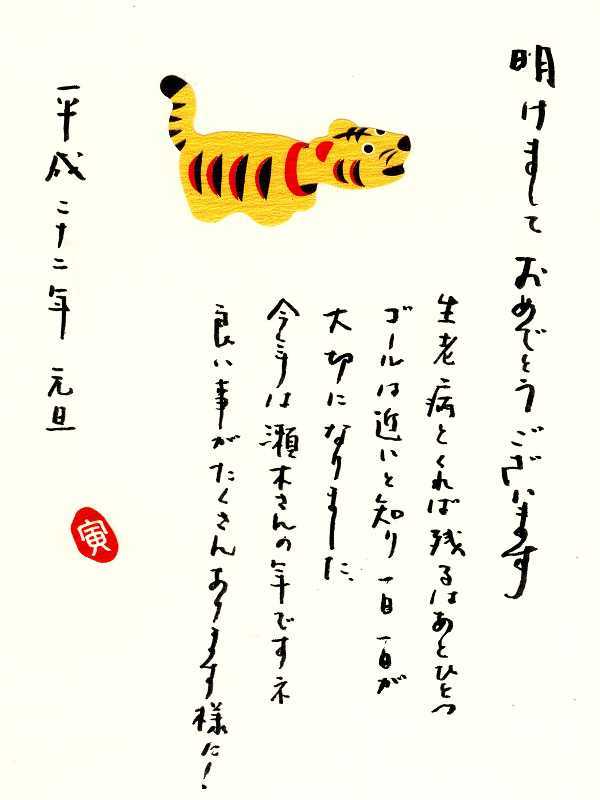 明けましておめでとうございます
生老病とくれば残るはあとひとつ
ゴールは近いと知り一日一日が
大切になりました、
今年は瀬木さんの年ですネ
良い事がたくさんあります様に!
平成二十二年 元旦
寅